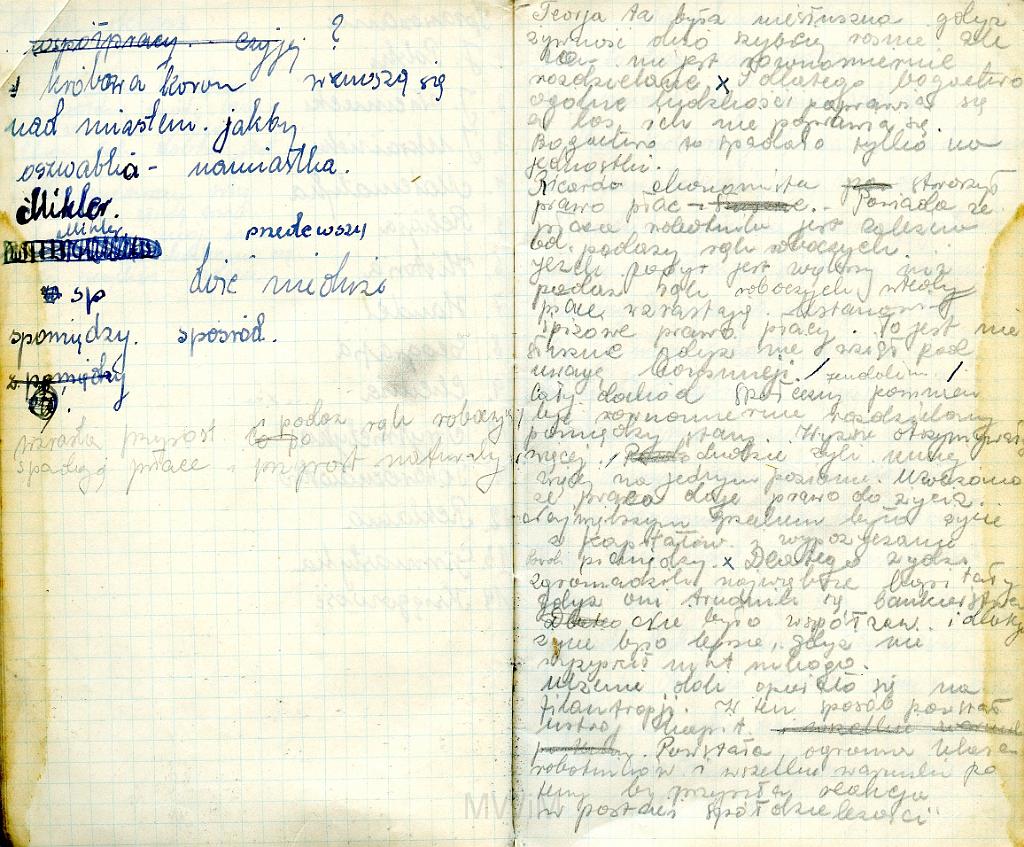 współpracy. czyjej ?
krobowa koron wznoszą się
nad miastem. jakby
oszwabka - namiastka.
Mikler.
Mikler
przedewszy
sp dość miedniso
spomiędzy. spośród.
z pomiędzy
wzrasta przyrost podaż rąk roboczych
spadają płace i przyrost naturalny
Teorja ta była niesłuszna gdyż
żywność dziś szybciej rośnie ale
nie jest równomiernie
rozdzielane x I dlatego bogactwo
ogólne ludzkości poprawia się
a los ich nie poprawia się.
Bogactwo to spadało tylko na
jednostki.
Ricardo ekonomista stworzył
prawo płac - Powiada że
płaca robotnika jest zależna
od podaży rąk roboczych
jeżeli popyt jest większy niż
podaż rąk roboczych wtedy
płace wzrastają. Ustanowił
spiżowe prawo pracy. To jest nie
słuszne gdyż nie wziął pod
uwagę
Cały dochód społeczny powinien
być równomiernie rozdzielony
pomiędzy stany. Wyższe otrzymywały
więcej. ludzie żyli mniej
więcej na jednym poziomie. Uważano
że praca daje prawo do życia.
Największym grzechem było życie
z kapitałów. z wypożyczania
pieniędzy. x Dlatego żydzi
zgromadzili największe kapitały
gdyż oni trudnili się bankierstwem
nie było współzaw. i dlatego
życie było lepsze, gdyż nie
wyzyskiwał nikt nikogo.
opierało się na
filantropji. W ten sposób powstał
ustrój kapit.
Powstała ogromna klasa
robotników i wszelkie warunki po
temu by przyszła reakcja
w postaci spółdzielczości
MWiM